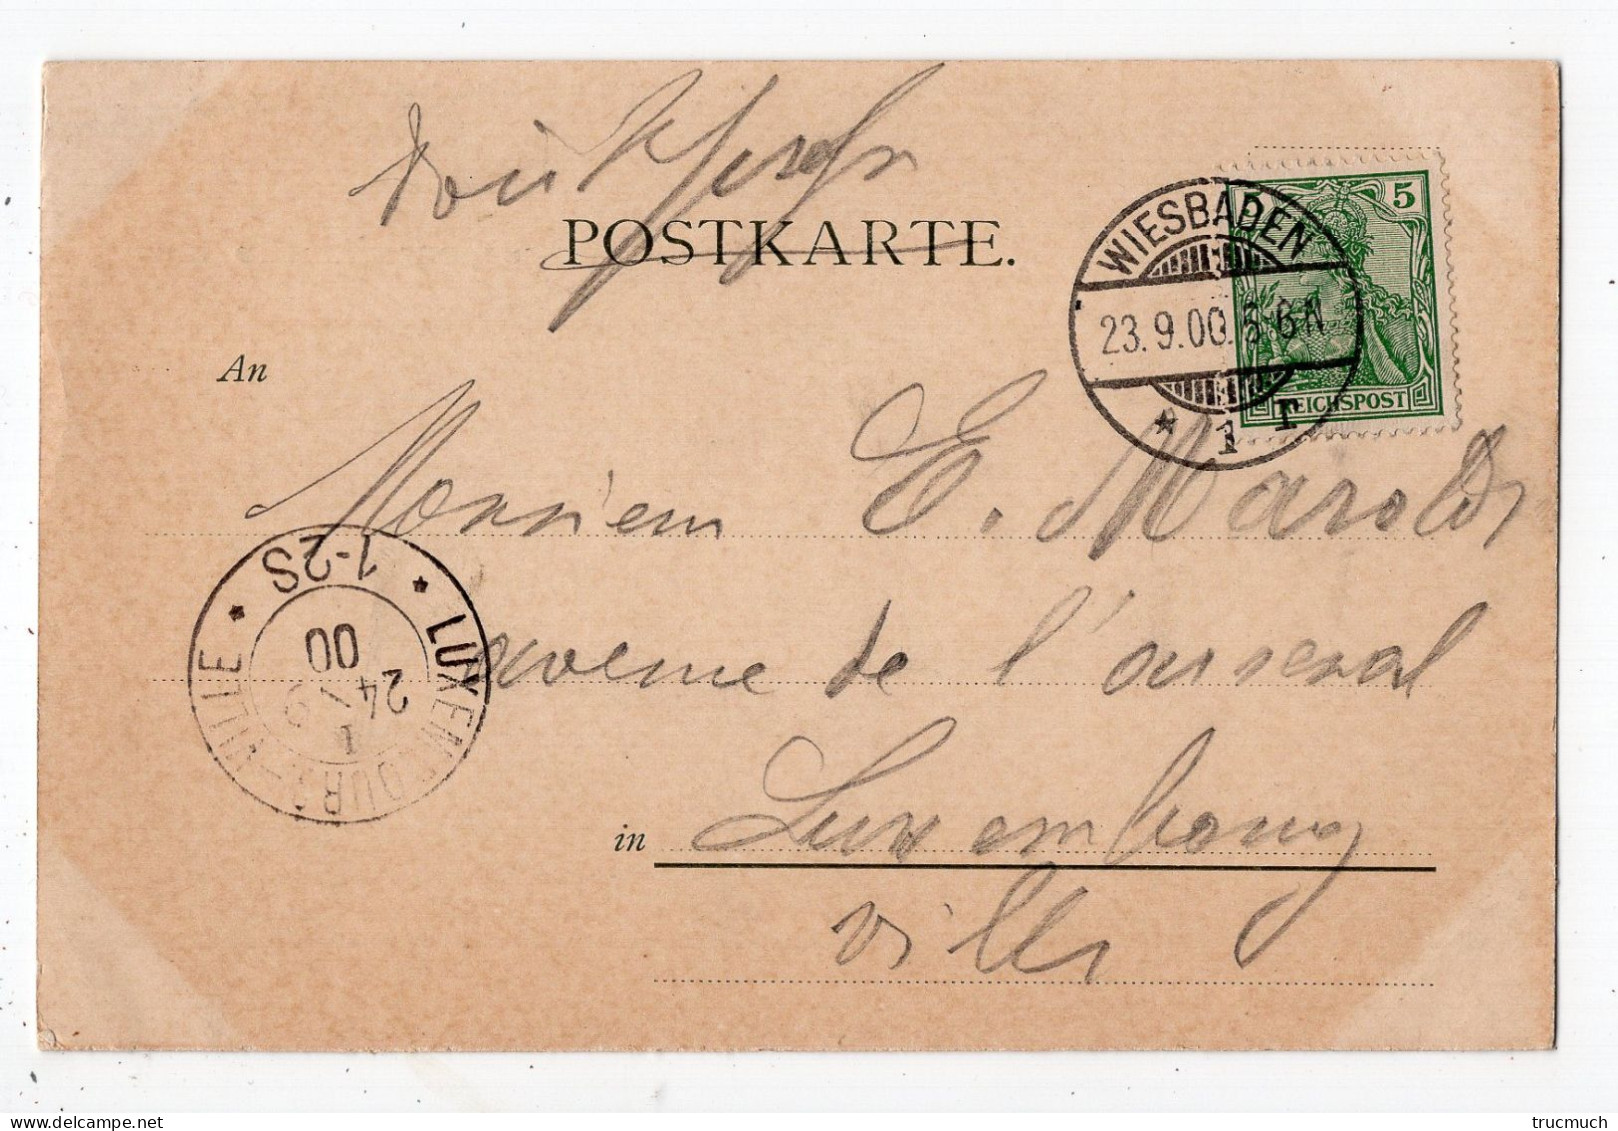 Drucksache
POSTKARTE.
WIESBADEN
23.9.00. 5-6N
* 1 r
5
REICHSPOST
An
Monsieur E. Maroldt
avenue de l'arsenal
in Luxembourg
ville
LUXEMBOURG-VILLE
* 1-2S *
24
9
00
trucmuch